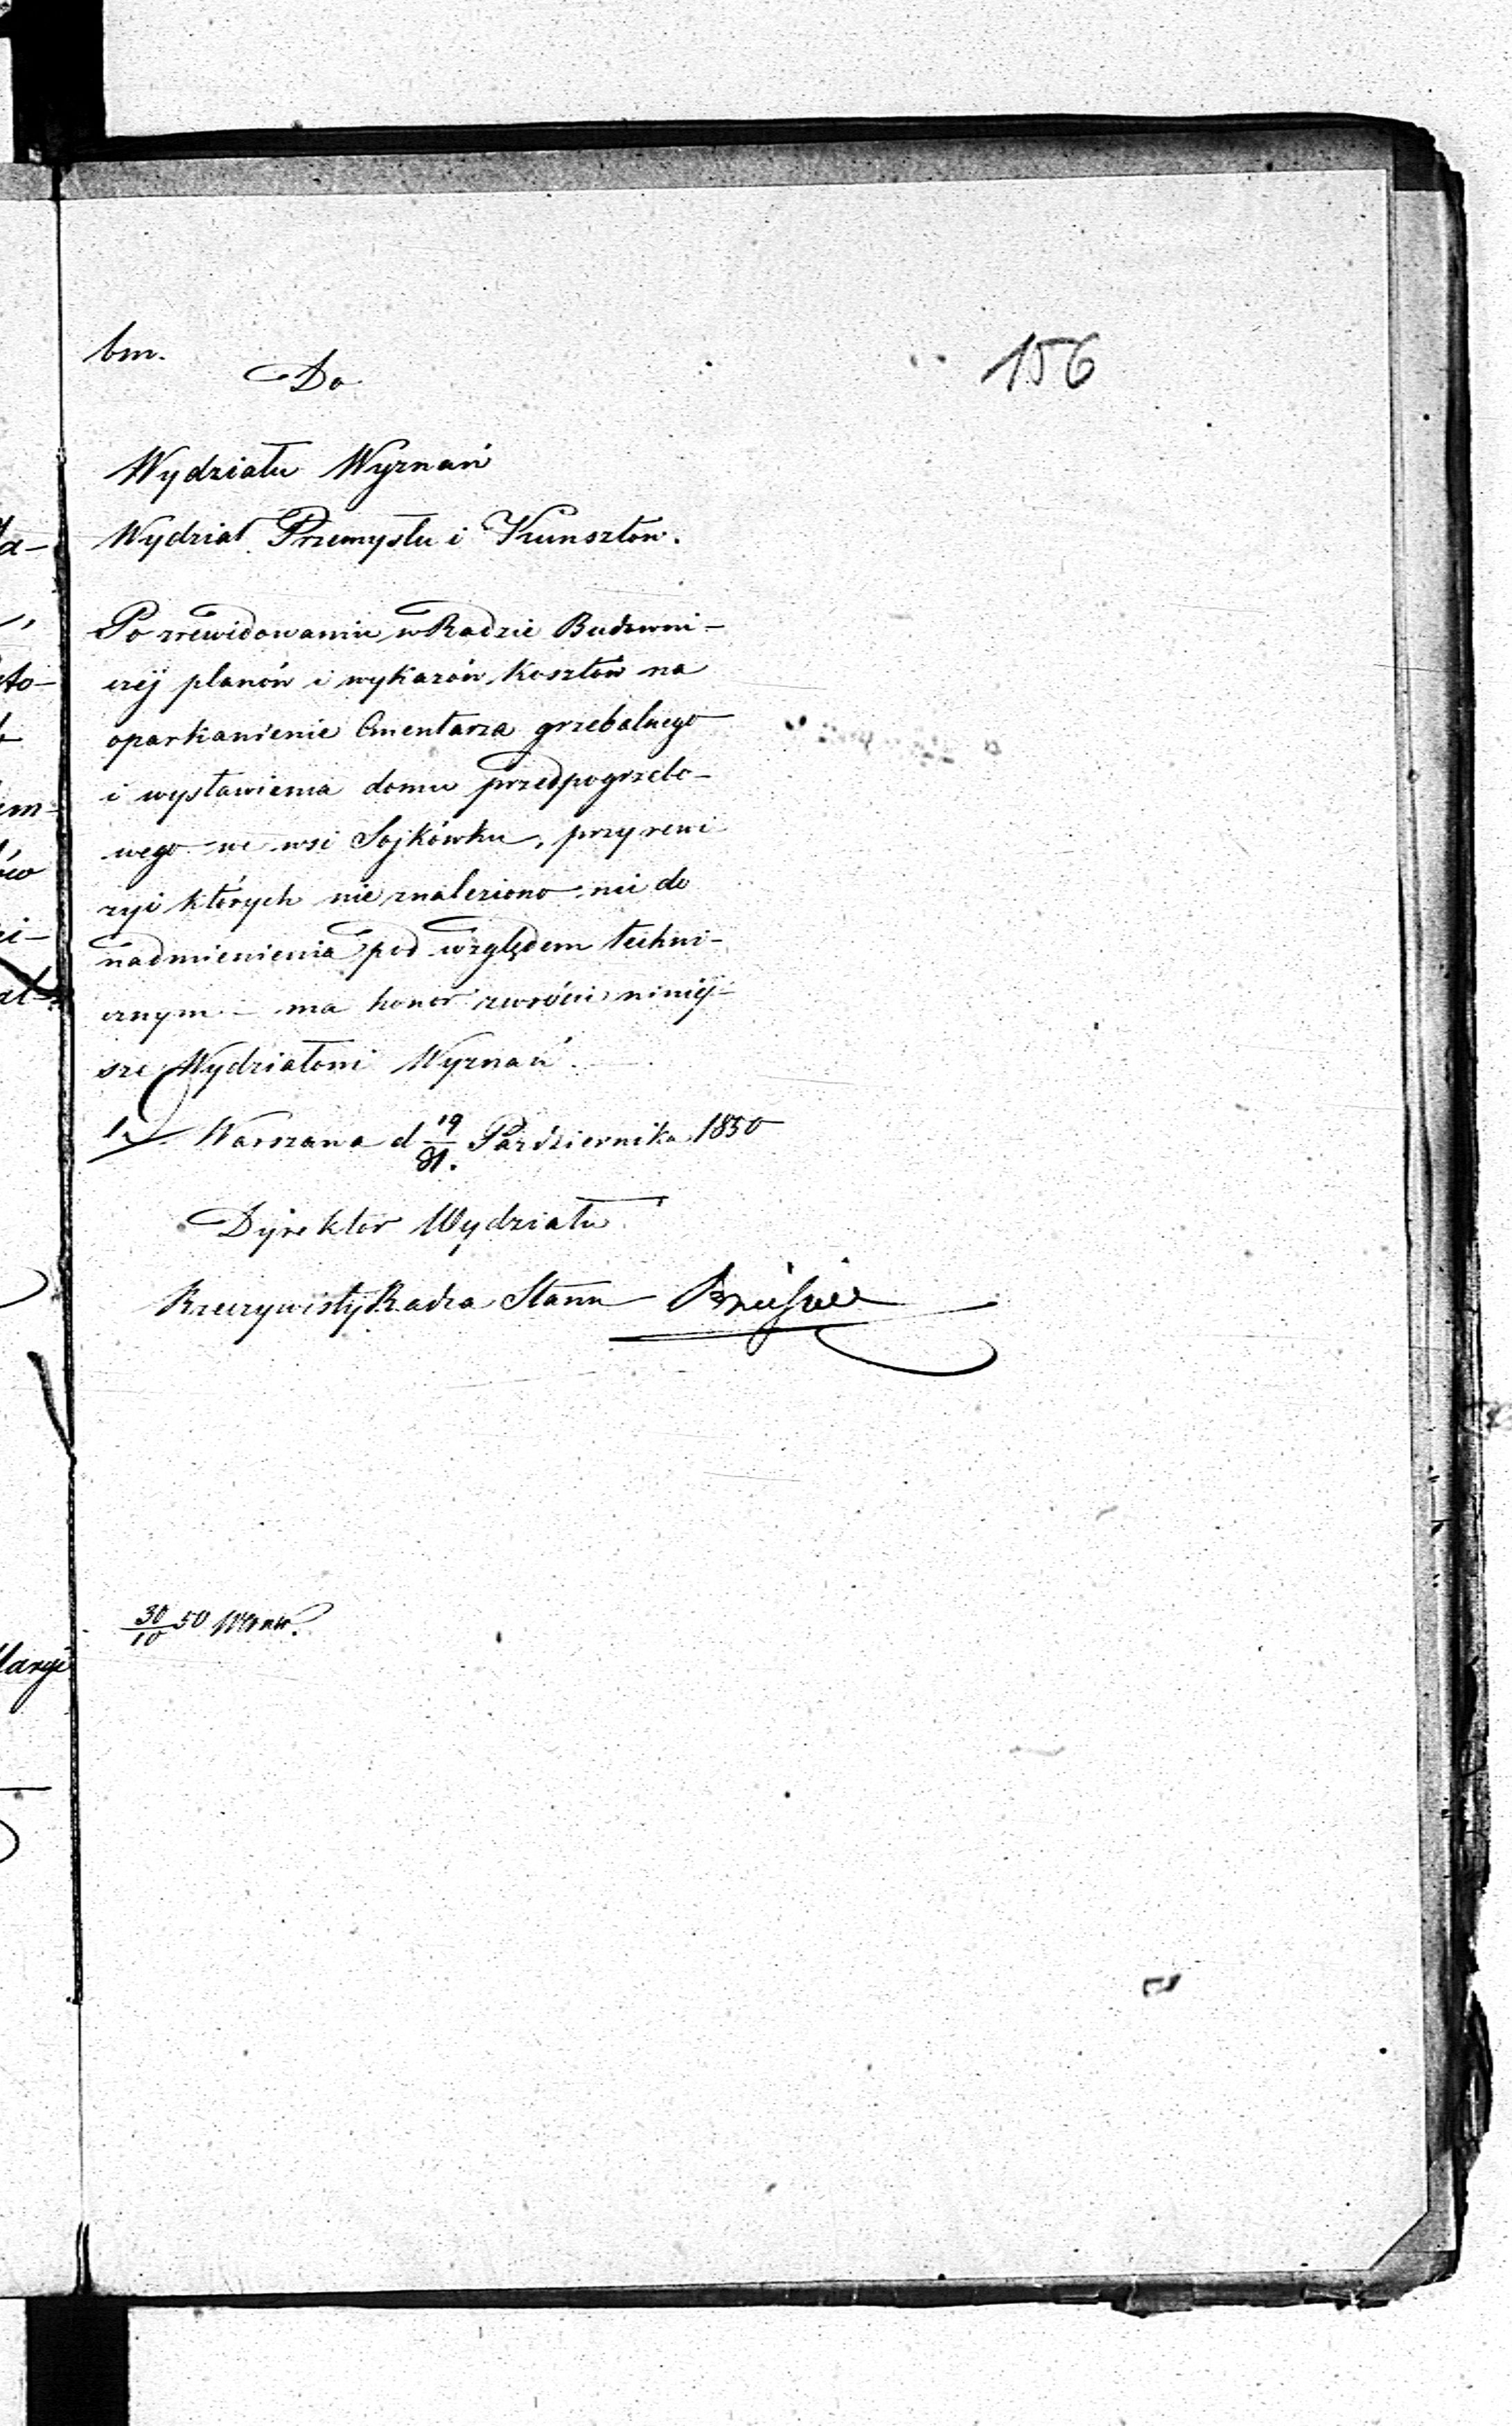 bm.
156
Do
Wydziału Wyznań
Wydział Przemysłu i Kunsztów.
Po zrewidowaniu w Radzie Budowni-
czéj planów i wykazów kosztów na
oparkanienie Cmentarza grzebalnego
i wystawienia domu przedpogrzebo-
wego we wsi Sojkówku, przy rewi
zyi których nie znaleziono nic do
nadmienienia pod względem techni-
cznym – ma honor zwrócić niniéj-
sze Wydziałowi Wyznań.
Warszawa d 19/31. Października 1850
Dyrektor Wydziału
Rzeczywisty Radca Stanu
30/10 50